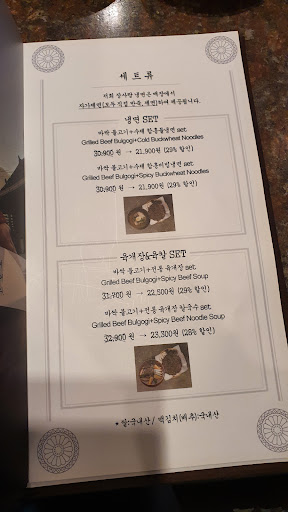 세트류
저희 삼사랑 냉면은 매장에서
자가제면(모두 직접 반죽, 제면)하여 제공됩니다.
냉면 SET
바싹 불고기+수제 함흥물냉면 set
Grilled Beef Bulgogi+Cold Buckwheat Noodles
30,900 원 → 21,900원 (29% 할인)
바싹 불고기+수제 함흥비빔냉면 set
Grilled Beef Bulgogi+Spicy Buckwheat Noodles
30,900 원 → 21,900원 (29% 할인)
육개장&육칼 SET
바싹 불고기+전통 육개장 set
Grilled Beef Bulgogi+Spicy Beef Soup
31,900 원 → 22,500원 (29% 할인)
바싹 불고기+전통 육개장 칼국수 set
Grilled Beef Bulgogi+Spicy Beef Noodle Soup
32,900 원 → 23,300원 (28% 할인)
*쌀:국내산 / 백김치(배추):국내산